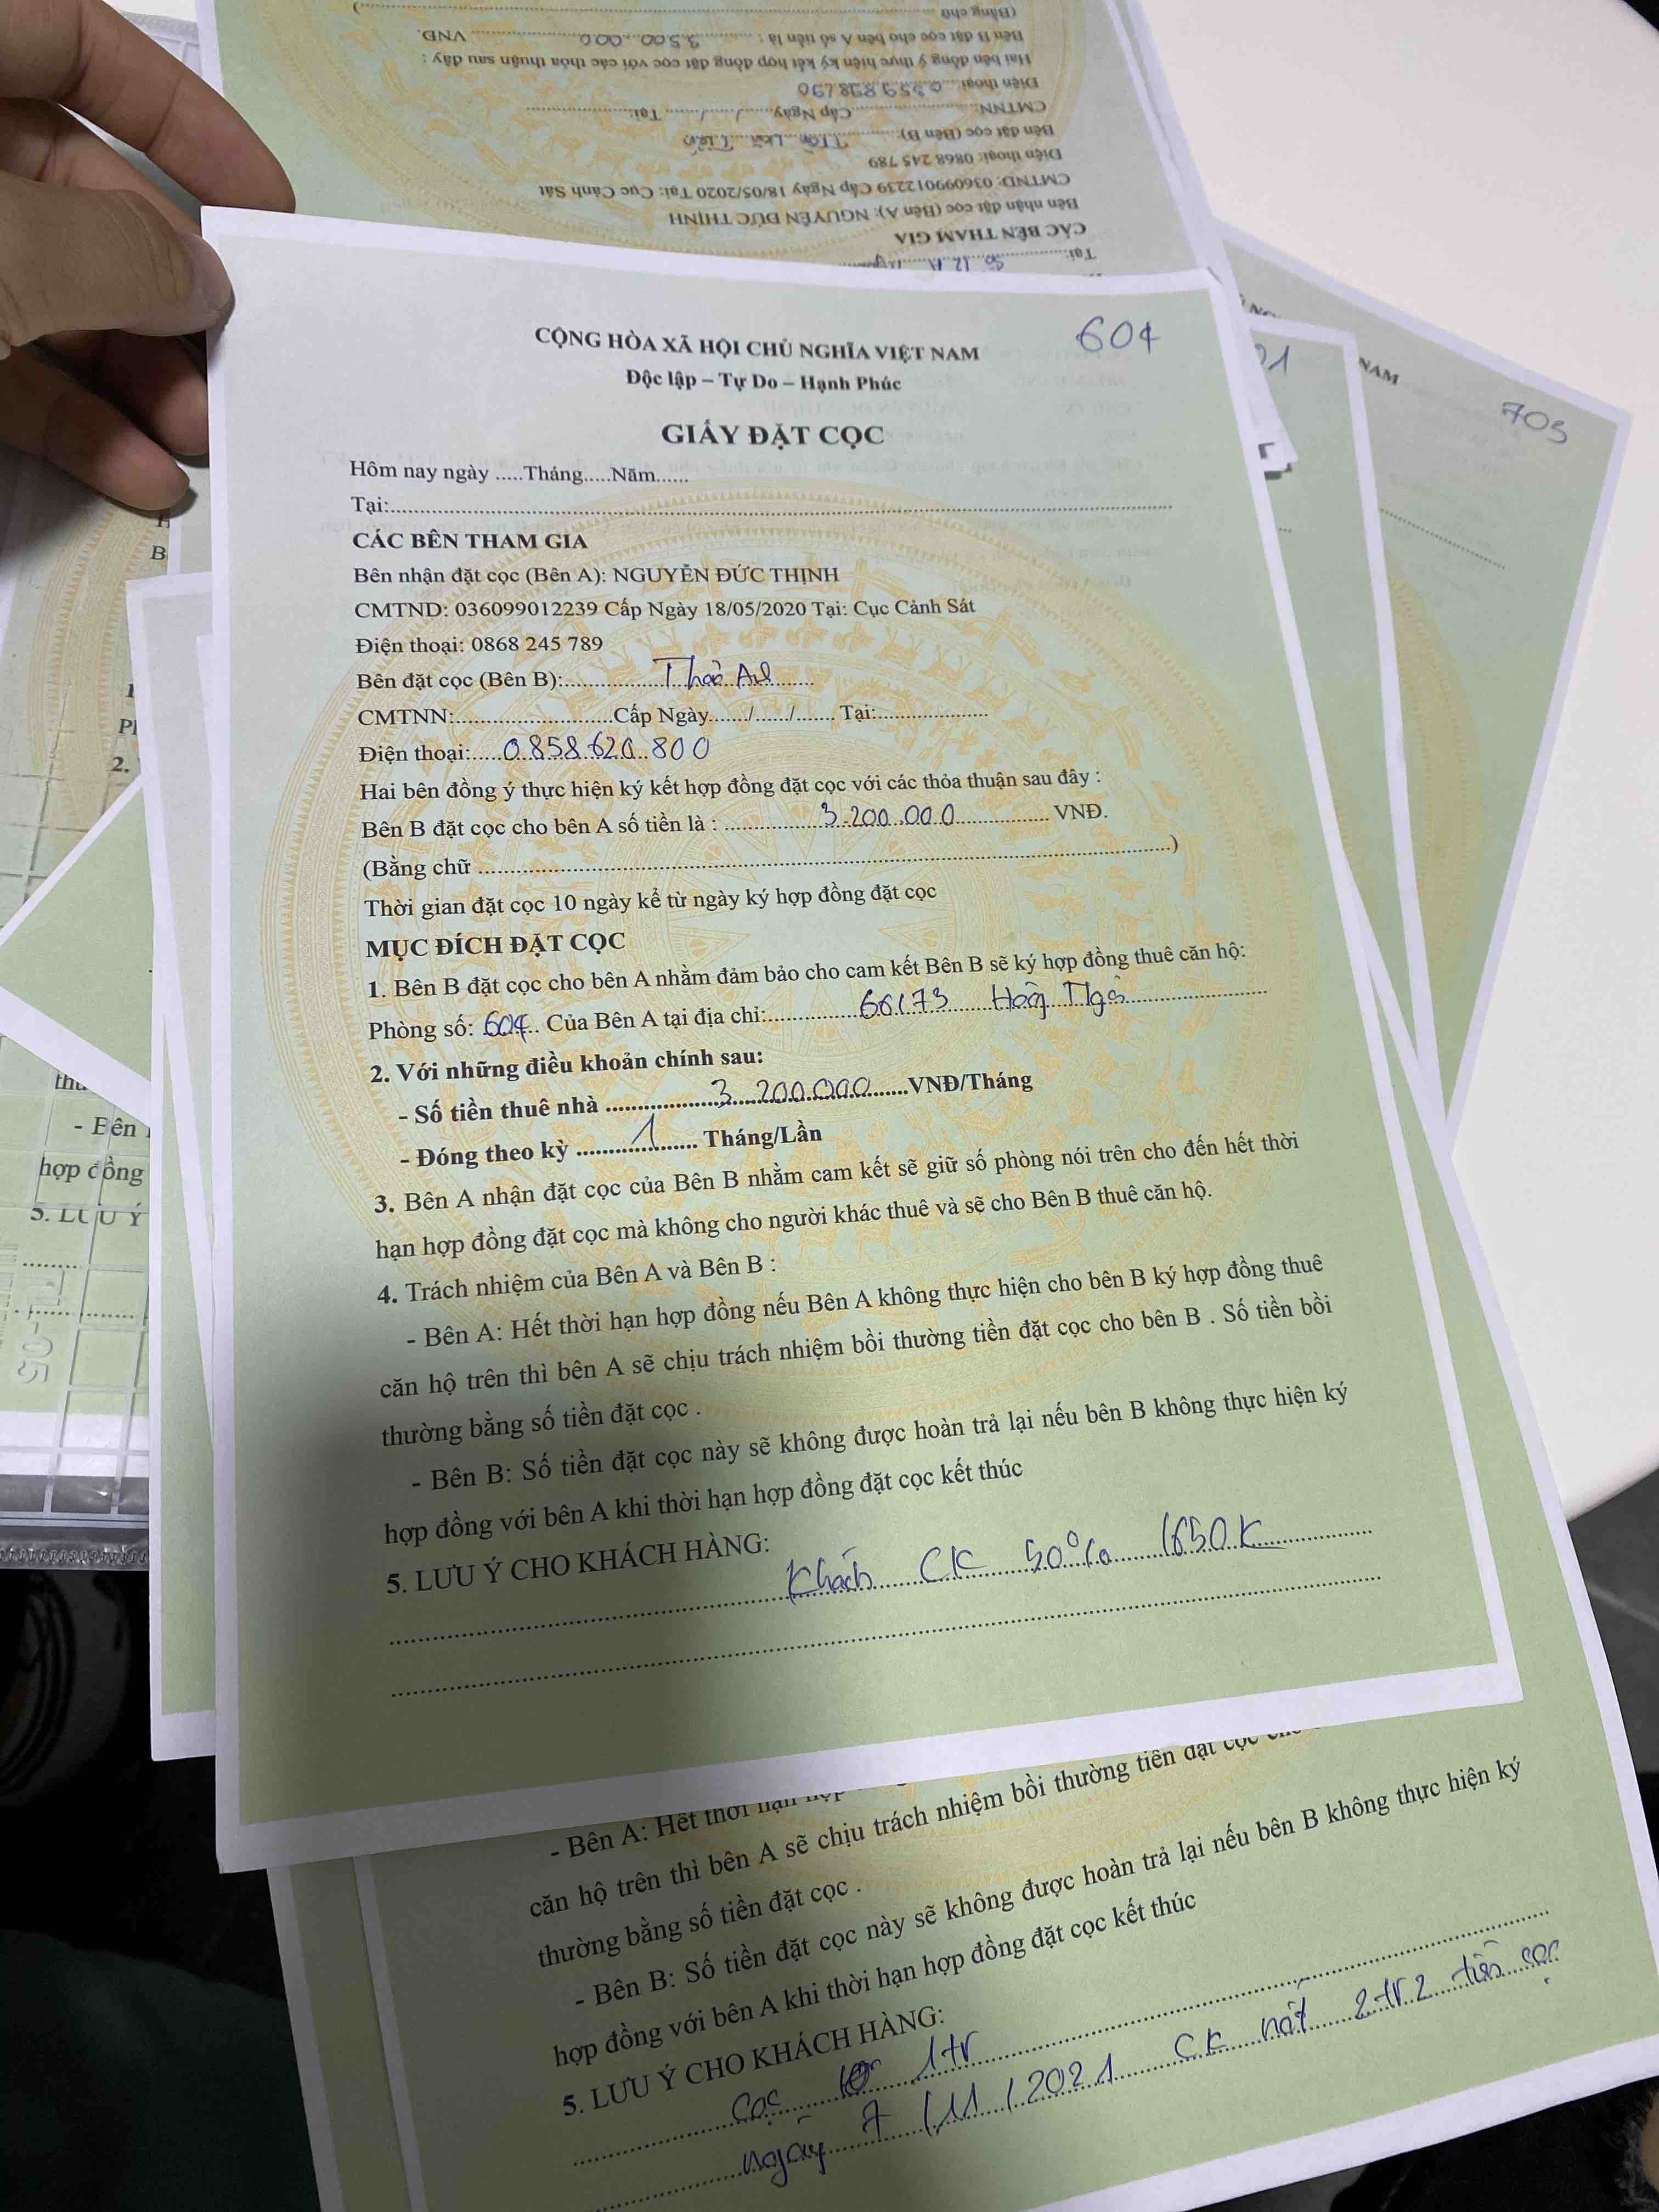 (Bằng chữ
Bên B đặt cọc cho bên A số tiền là : 3.500.000 VNĐ.
Hai bên đồng ý thực hiện ký kết hợp đồng đặt cọc với các thỏa thuận sau đây :
Điện thoại:
CMTNN: Cấp Ngày / / Tại:
Bên đặt cọc (Bên B):
Điện thoại: 0868 245 789
CMTND: 036099012239 Cấp Ngày 18/05/2020 Tại: Cục Cảnh Sát
Bên nhận đặt cọc (Bên A): NGUYỄN ĐỨC THỊNH
CÁC BÊN THAM GIA
Tại: Số 12A
CỘNG HÒA XÃ HỘI CHỦ NGHĨA VIỆT NAM
604
Độc lập – Tự Do – Hạnh Phúc
GIẤY ĐẶT CỌC
Hôm nay ngày .....Tháng.....Năm......
Tại:
CÁC BÊN THAM GIA
Bên nhận đặt cọc (Bên A): NGUYỄN ĐỨC THỊNH
CMTND: 036099012239 Cấp Ngày 18/05/2020 Tại: Cục Cảnh Sát
Điện thoại: 0868 245 789
Bên đặt cọc (Bên B): Thảo
CMTNN: Cấp Ngày / / Tại:
Điện thoại: 0858.620.800
Hai bên đồng ý thực hiện ký kết hợp đồng đặt cọc với các thỏa thuận sau đây :
Bên B đặt cọc cho bên A số tiền là : 3.200.000 VNĐ.
(Bằng chữ )
Thời gian đặt cọc 10 ngày kể từ ngày ký hợp đồng đặt cọc
MỤC ĐÍCH ĐẶT CỌC
1. Bên B đặt cọc cho bên A nhằm đảm bảo cho cam kết Bên B sẽ ký hợp đồng thuê căn hộ:
Phòng số: 604 Của Bên A tại địa chỉ:
2. Với những điều khoản chính sau:
- Số tiền thuê nhà 3.200.000 VNĐ/Tháng
- Đóng theo kỳ 1 Tháng/Lần
3. Bên A nhận đặt cọc của Bên B nhằm cam kết sẽ giữ số phòng nói trên cho đến hết thời
hạn hợp đồng đặt cọc mà không cho người khác thuê và sẽ cho Bên B thuê căn hộ.
4. Trách nhiệm của Bên A và Bên B :
- Bên A: Hết thời hạn hợp đồng nếu Bên A không thực hiện cho bên B ký hợp đồng thuê
căn hộ trên thì bên A sẽ chịu trách nhiệm bồi thường tiền đặt cọc cho bên B . Số tiền bồi
thường bằng số tiền đặt cọc .
- Bên B: Số tiền đặt cọc này sẽ không được hoàn trả lại nếu bên B không thực hiện ký
hợp đồng với bên A khi thời hạn hợp đồng đặt cọc kết thúc
5. LƯU Ý CHO KHÁCH HÀNG:
Khách CK 50% 1650K
NAM
703
- Bên
hợp đồng
5. LƯU Ý
- Bên A: Hết thời hạn
căn hộ trên thì bên A sẽ chịu trách nhiệm bồi thường tiền đặt cọc
thường bằng số tiền đặt cọc .
- Bên B: Số tiền đặt cọc này sẽ không được hoàn trả lại nếu bên B không thực hiện ký
hợp đồng với bên A khi thời hạn hợp đồng đặt cọc kết thúc
5. LƯU Ý CHO KHÁCH HÀNG:
Cọc 1tr
ngày 7/11/2021 CK nốt 2tr2 tiền cọc